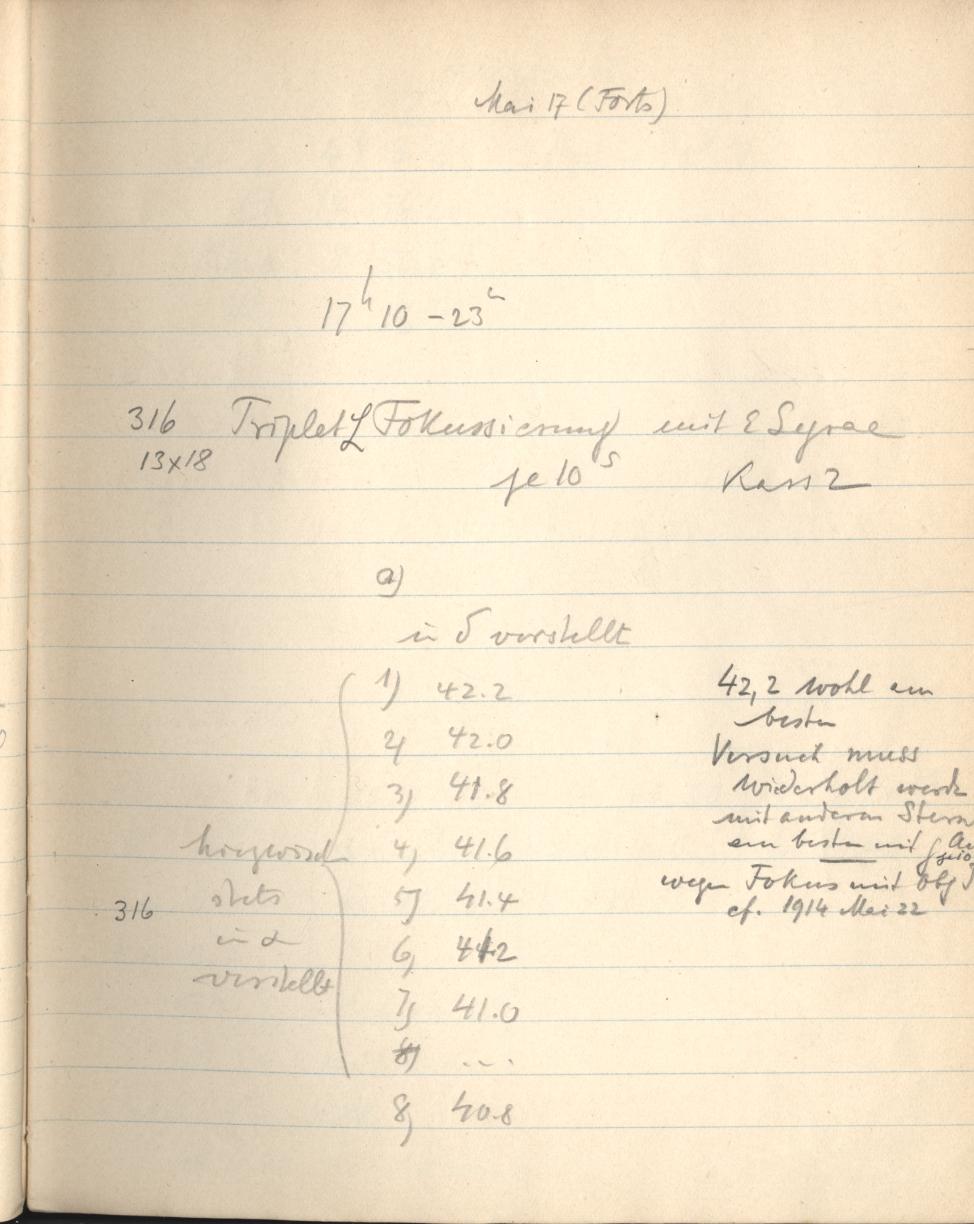 Mai 17 (Forts)
17h 10 – 23h
316 Triplet L Fokussierung mit ε Lyrae
13x18 je 10s Kass 2
a)
in δ verstellt
1) 42.2
2) 42.0
3) 41.8
4) 41.6
5) 41.4
6) 41.2
7) 41.0
8) ....
8) 40.8
316
stets
in α
verstellt
42,2 wohl am
besten
Versuch muss
wiederholt werden
mit anderem Stern
am besten mit
wegen Fokus mit Obj
cf. 1914 Mai 22